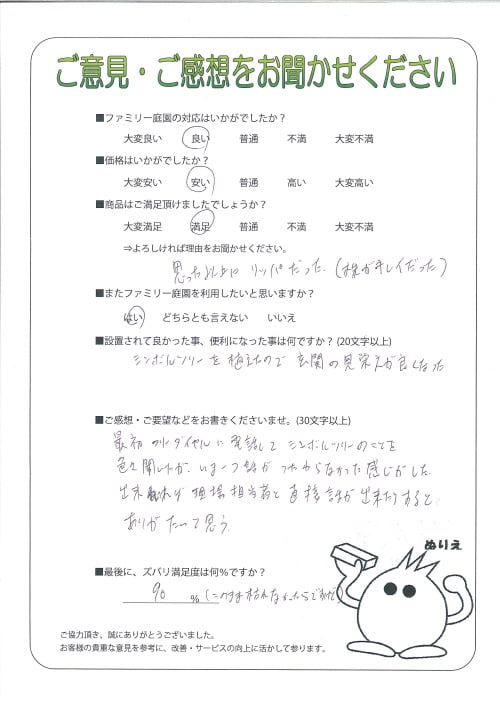 ご意見・ご感想をお聞かせください
■ファミリー庭園の対応はいかがでしたか？
大変良い 良い 普通 不満 大変不満
■価格はいかがでしたか？
大変安い 安い 普通 高い 大変高い
■商品はご満足頂けましたでしょうか？
大変満足 満足 普通 不満 大変不満
⇒よろしければ理由をお聞かせください。
思った以上に リッパだった．(枝がキレイだった)
■またファミリー庭園を利用したいと思いますか？
はい どちらとも言えない いいえ
■設置されて良かった事、便利になった事は何ですか？(20文字以上)
シンボルツリーを植えたので 玄関の見栄えが良くなった
■ご感想・ご要望などをお書きくださいませ。(30文字以上)
最初 フリーダイヤルに電話して シンボルツリーのことを
色々聞いたが、いま一つ話が つたわらなかった感じがした．
出来れば 現場担当者と直接話が出来たりすると
ありがたいって思う．
ぬりえ
■最後に、ズバリ満足度は何％ですか？
90 ％ (このまま枯れなかったらですが)
ご協力頂き、誠にありがとうございました。
お客様の貴重な意見を参考に、改善・サービスの向上に活かして参ります。